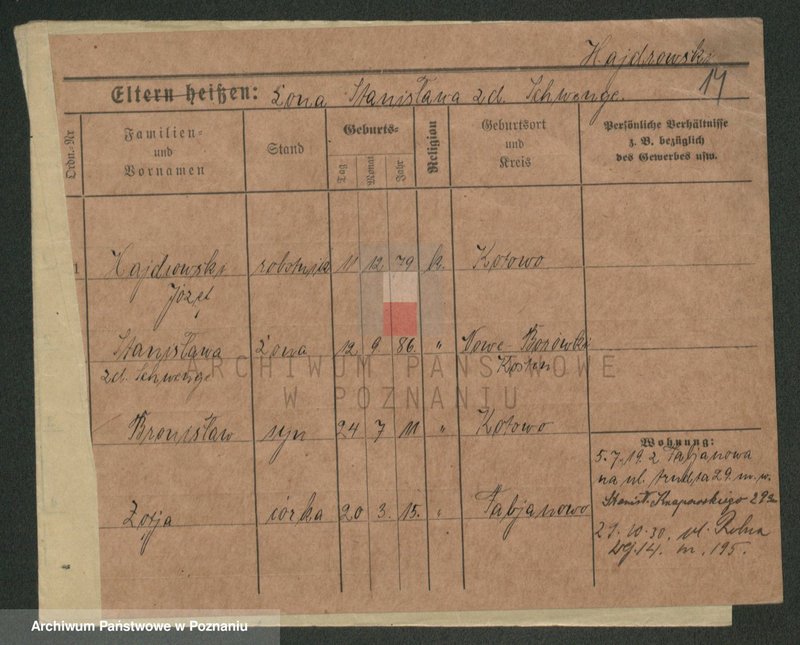 Hajdrowski
17
Eltern heißen: żona Stanisława zd. Schwenge.
Ordn.-Nr
Familien-
und
Vornamen
Stand
Geburts-
Tag
Monat
Jahr
Religion
Geburtsort
und
Kreis
Persönliche Verhältnisse
z. B. bezüglich
des Gewerbes usw.
1 Hajdrowski robotnik 11 12 79 k. Kotowo
Józef
Stanisława żona 12 9 86. „ Nowe
zd. Schwenge
Bronisław syn 24 7 11 „ Kotowo
Zofja córka 20 3. 15. „ Fabjanowo
Wohnung:
5. 7. 19. z Fabjanowa
na ul. 29. m. w.
29. 10. 30. ul. Rolna
14. m. 195.
ARCHIWUM PAŃSTWOWE
W POZNANIU
Archiwum Państwowe w Poznaniu